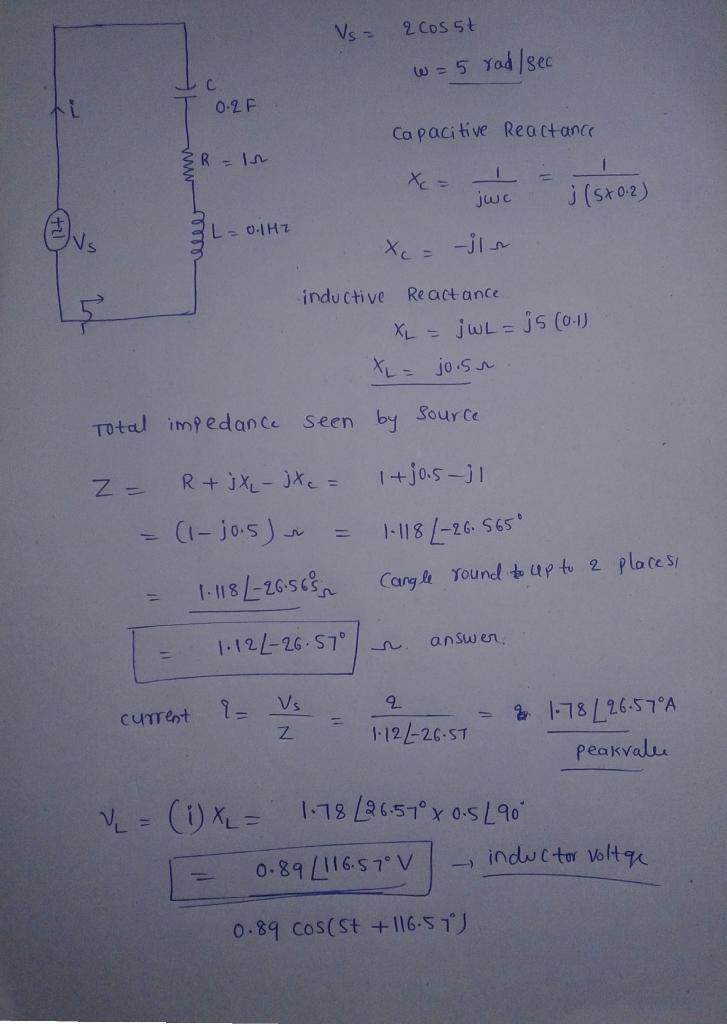 Vs = 2 cos 5t
w = 5 rad/sec
C
0.2 F
i
Capacitive Reactance
R = 1Ω
Xc = 1/jwc = 1/j(5x0.2)
+
Vs
L = 0.1Hz
Xc = -j1Ω
inductive Reactance
XL = jwL = j5 (0.1)
XL = j0.5Ω
Total impedance seen by source
Z = R + jXL - jXc = 1+j0.5-j1
= (1-j0.5)Ω = 1.118 ∠-26.565°
= 1.118∠-26.565°Ω (angle round to up to 2 places,
= 1.12∠-26.57° Ω answer.
current i = Vs/Z = 2/1.12∠-26.57 = 1.78∠26.57°A
peakvalue
VL = (i) XL = 1.78∠26.57° x 0.5∠90°
= 0.89∠116.57° V → inductor voltage
0.89 cos(5t + 116.57°)